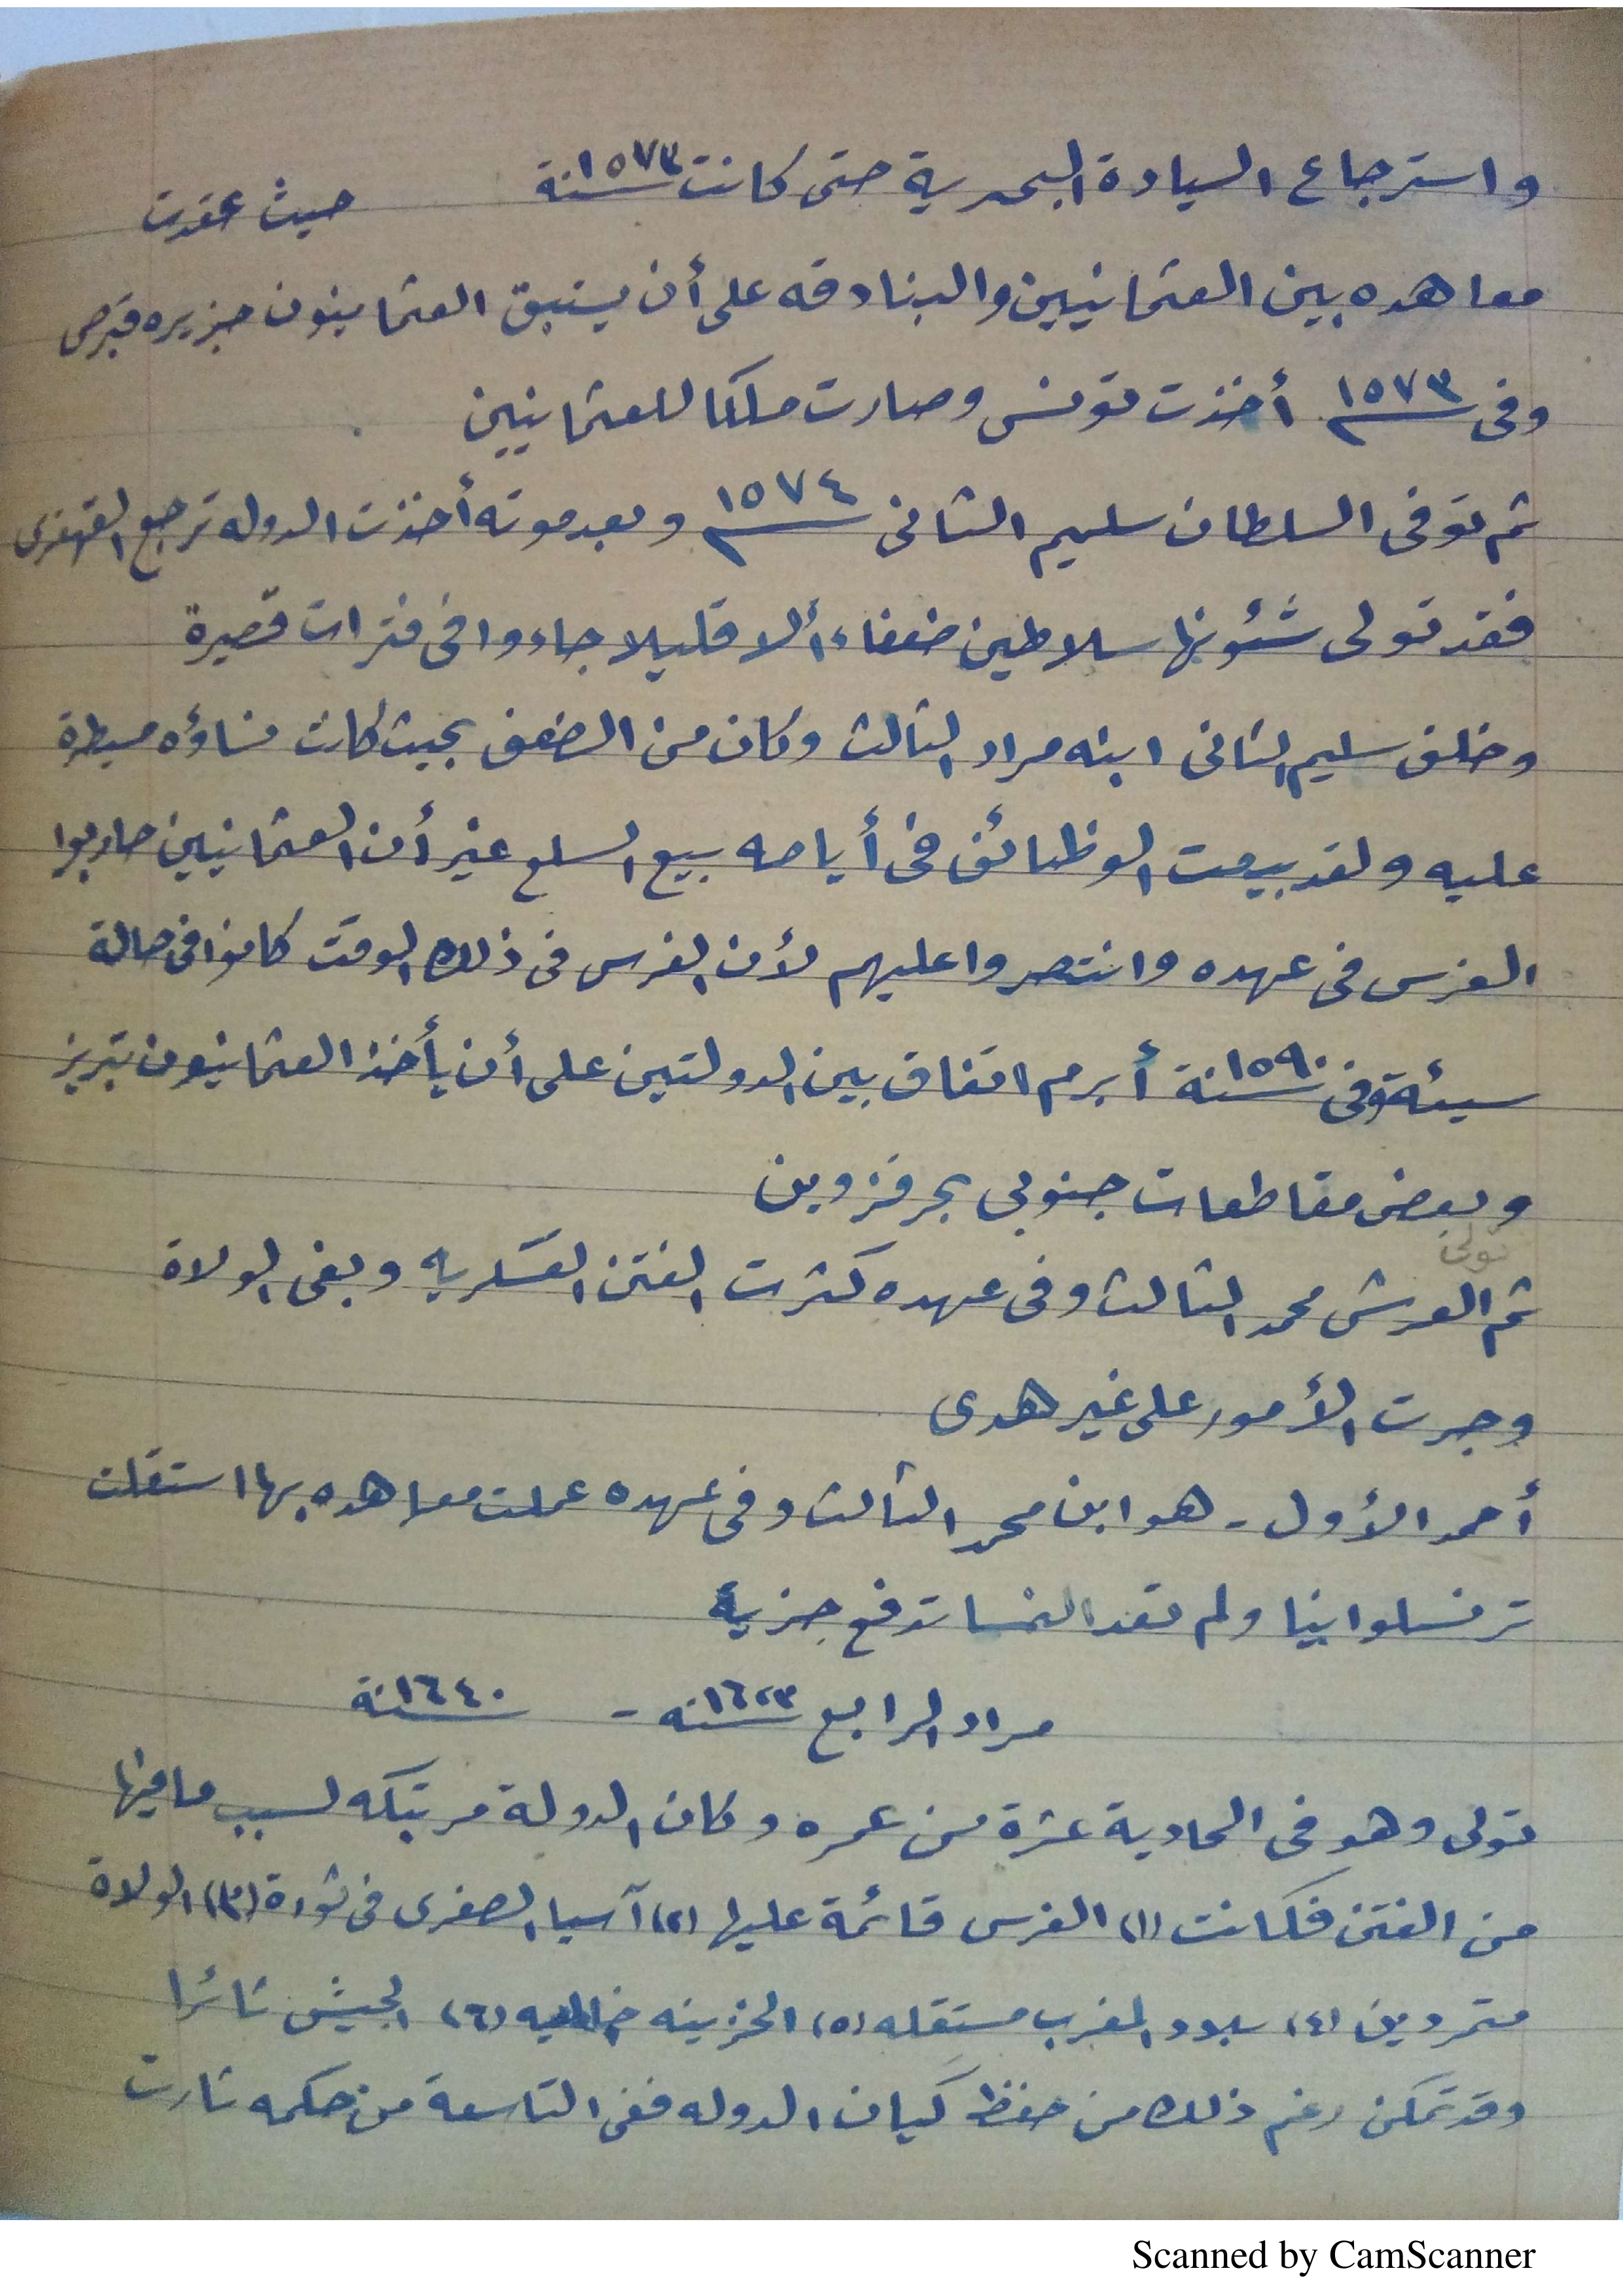 واسترجاع السيادة البحرية حتى كانت سنة ١٥٧٣ حيث عقدت
معاهده بين العثمانيين والبنادقه على أن يستبق العثمانيون جزيره قبرص
وفى ١٥٧٣م أخذت تونس وصارت ملكا للعثمانيين
ثم توفى السلطان سليم الثانى ١٥٧٤م وبعد موته أخذت الدوله ترجع القهقرى
فقد تولى شئونها سلاطين ضعفاء ألا قليلا جاءوا فى فترات قصيرة
وخلف سليم الثانى ابنه مراد الثالث وكان من الضعف بحيث كانت نساؤه مسيطرة
عليه ولقد بيعت الوظائف فى أيامه بيع السلع غير أن العثمانيين حاربوا
الفرس فى عهده وانتصروا عليهم لأن الفرس فى ذلك الوقت كانوا فى حالة
سيئة وفى سنة ١٥٩٠ أبرم اتفاق بين الدولتين على أن يأخذ العثمانيون تبريز
وبعض مقاطعات جنوبى بحر قزوين
تولى
ثم العرش محمد الثالث وفى عهده كثرت الفتن العسكريه وبغى الولاة
وجرت الأمور على غير هدى
أحمد الأول - هو ابن محمد الثالث وفى عهده عملت معاهده بها استقلت
ترنسلوانيا ولم تعد النمسا تدفع جزية
مراد الرابع سنه ١٦٢٣ - سنة ١٦٤٠
تولى وهو فى الحادية عشرة من عمره وكان الدولة مرتبكه لسبب ما فيها
من الفتن فكانت (١) الفرس قائمة عليها (٢) آسيا الصغرى فى ثورة (٣) الولاة
متمردين (٤) بلاد المغرب مستقله (٥) الخزينه خاليه (٦) الجيش ثائرا
وقد تمكن رغم ذلك من حفظ كيان الدوله ففى التاسعة من حكمه ثارت
Scanned by CamScanner